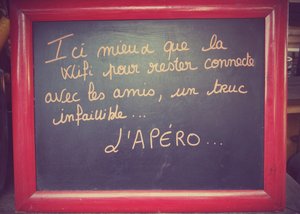 Ici mieux que la
Wifi pour rester connecté
avec les amis, un truc
infaillible...
L'APÉRO...